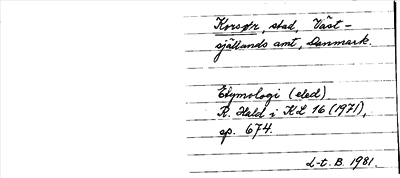 Korsør, stad, Väst-
sjællands amt, Danmark.
Etymologi (eled)
K. Hald i KL 16 (1971),
sp. 674.
L-t. B. 1981.